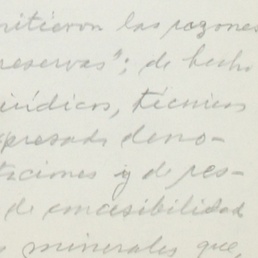 mitieron las razones
reservas"; de hecho
jurídicos, técnicos
expresada deno-
taciones y de res-
de accesibilidad
s minerales que,